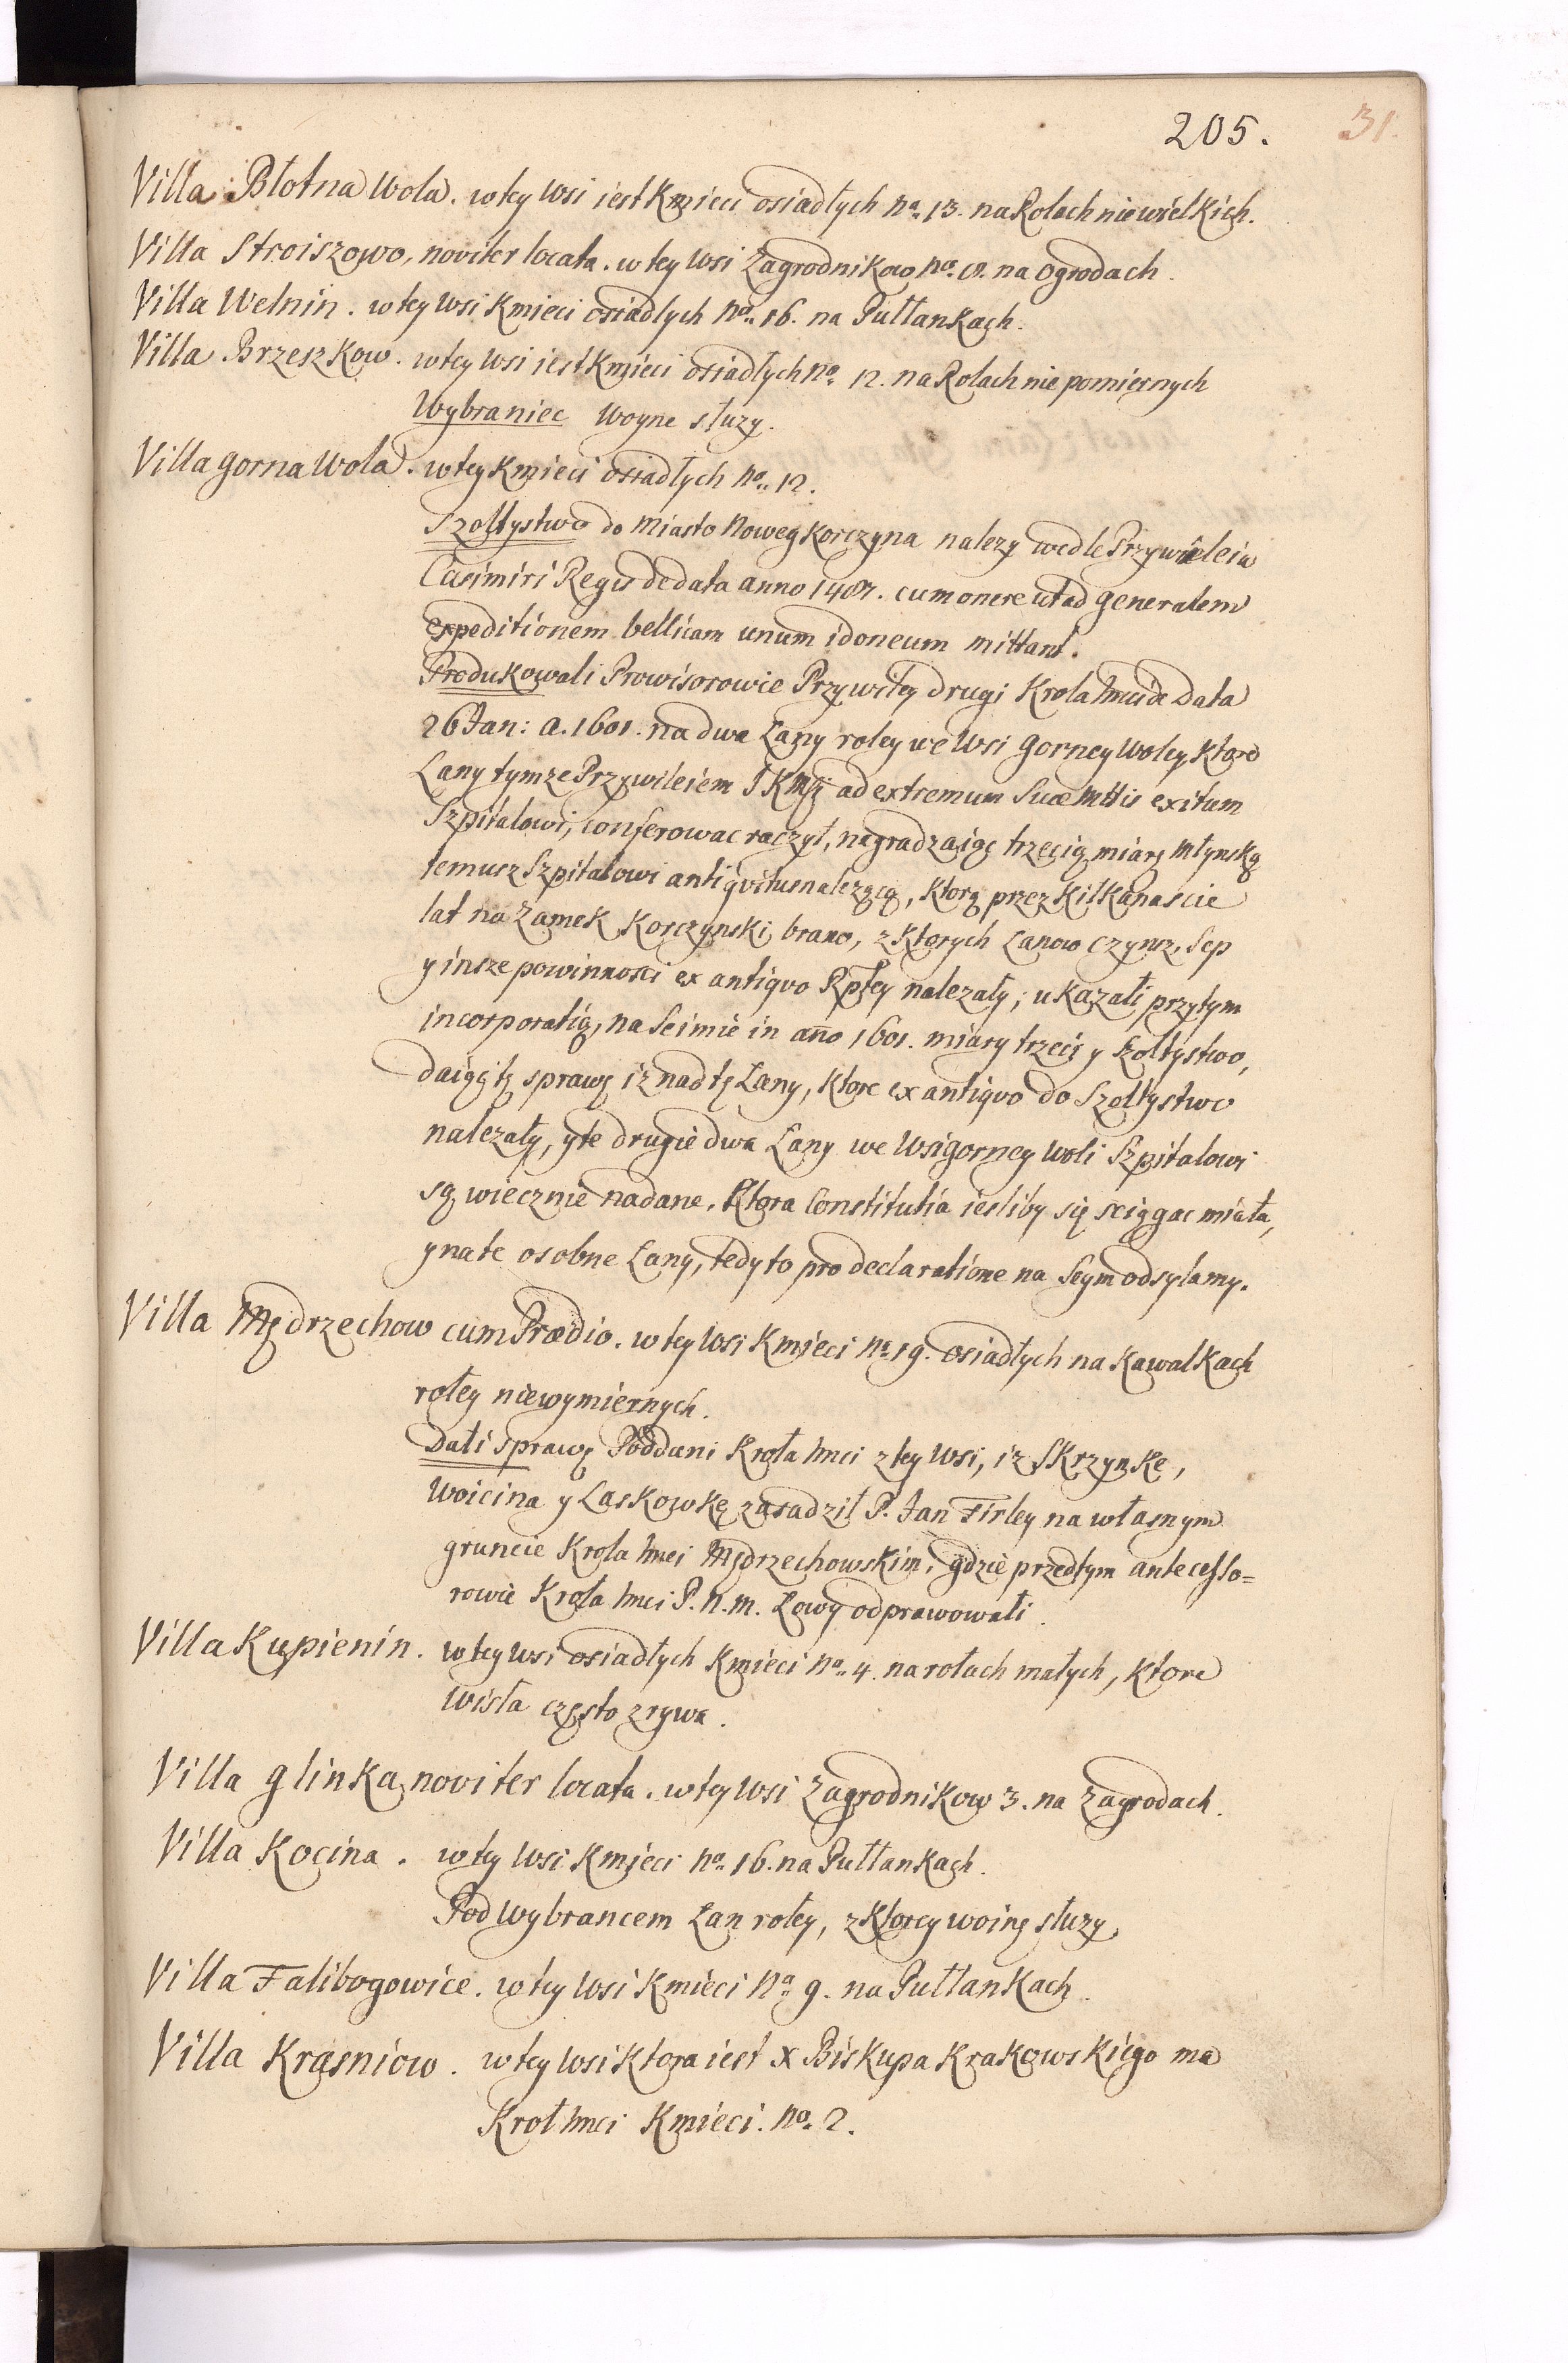 205. 31.
Villa Błotna Wola. w tey Wsi iest Kmieci osiadłych No. 13. na Rolach niewielkich.
Villa Stroiszowo, noviter locata. w tey Wsi Zagrodnikow No. 8. na Ogrodach.
Villa Welnin. w tey Wsi Kmieci osiadłych No. 16. na Pułłankach.
Villa Brzeszkow. w tey Wsi iest Kmieci osiadłych No. 12. na Rolach nie pomiernych
Wybraniec Woyne służy.
Villa gorna Wola. w tey Kmieci osiadłych No. 12.
Szołtystwo do Miasto Noweg Korczyna nalezy wedle Przywileia
Casimiri Regis de data anno 1487. cum onere ut ad generalem
expeditionem bellicam unum idoneum mittant.
Produkowali Prowisorowie Przywiley drugi Krola Jmci de Data
26 Jan: a. 1601. na dwa Łany roley we Wsi Gorney Woley, ktore
Łany tymze Przywileiem JKMśi ad extremum Suae Mttis exitum
Szpitalowi, conferowac raczył, nagradzaiąc trzecią miarę Młynską
temusz Szpitalowi antiqvitus nalezącą, ktorą przez kilkanascie
lat na Zamek Korczynski brano, z ktorych Łanow czynsz, Sep
y insze powinnosci ex antiqvo Rptey nalezały; ukazali przytym
incorporatią, na Seimie in año 1601. miary trzeciey y Szołtystwo,
daiąc tę sprawę iz nad tę Łany, ktore ex antiqvo do Szołtystwo
nalezały, y te drugie dwa Łany we Wsi gorney Woli Szpitalowi
są wiecznie nadane. Ktora Constitutia iesliby się sciągac miała,
y na te osobne Łany, tedy to pro declaratione na Seym odsylamy.
Villa Mędrzechow cum Praedio. w tey Wsi Kmieci No. 19. osiadłych na Kawalkach
roley niewymiernych.
Dali sprawę Poddani Krola Jmci z tey Wsi, iz Skrzynkę,
Woicina y Laskowkę zasadził P. Jan Firley na własnym
gruncie Krola Jmci Mędrzechowskim, gdzie przedtym antecesso=
rowie Krola Jmci P. N. M. Łowy odprawowali.
Villa Kupienin. w tey wsi osiadłych Kmieci No. 4. na rolach małych, ktore
Wisła często zrywa.
Villa glinka, noviter locata. w tey Wsi Zagrodnikow 3. na Zagrodach.
Villa Kocina. w tey Wsi Kmieci No. 16. na Pułłankach.
Pod Wybrancem Łan roley, z ktorey woinę służy.
Villa Falibogowice. w tey Wsi Kmieci No. 9. na Pułłankach.
Villa Krasniow. w tey Wsi ktora iest X Biskupa Krakowskiego ma
Krol Jmci Kmieci. No. 2.